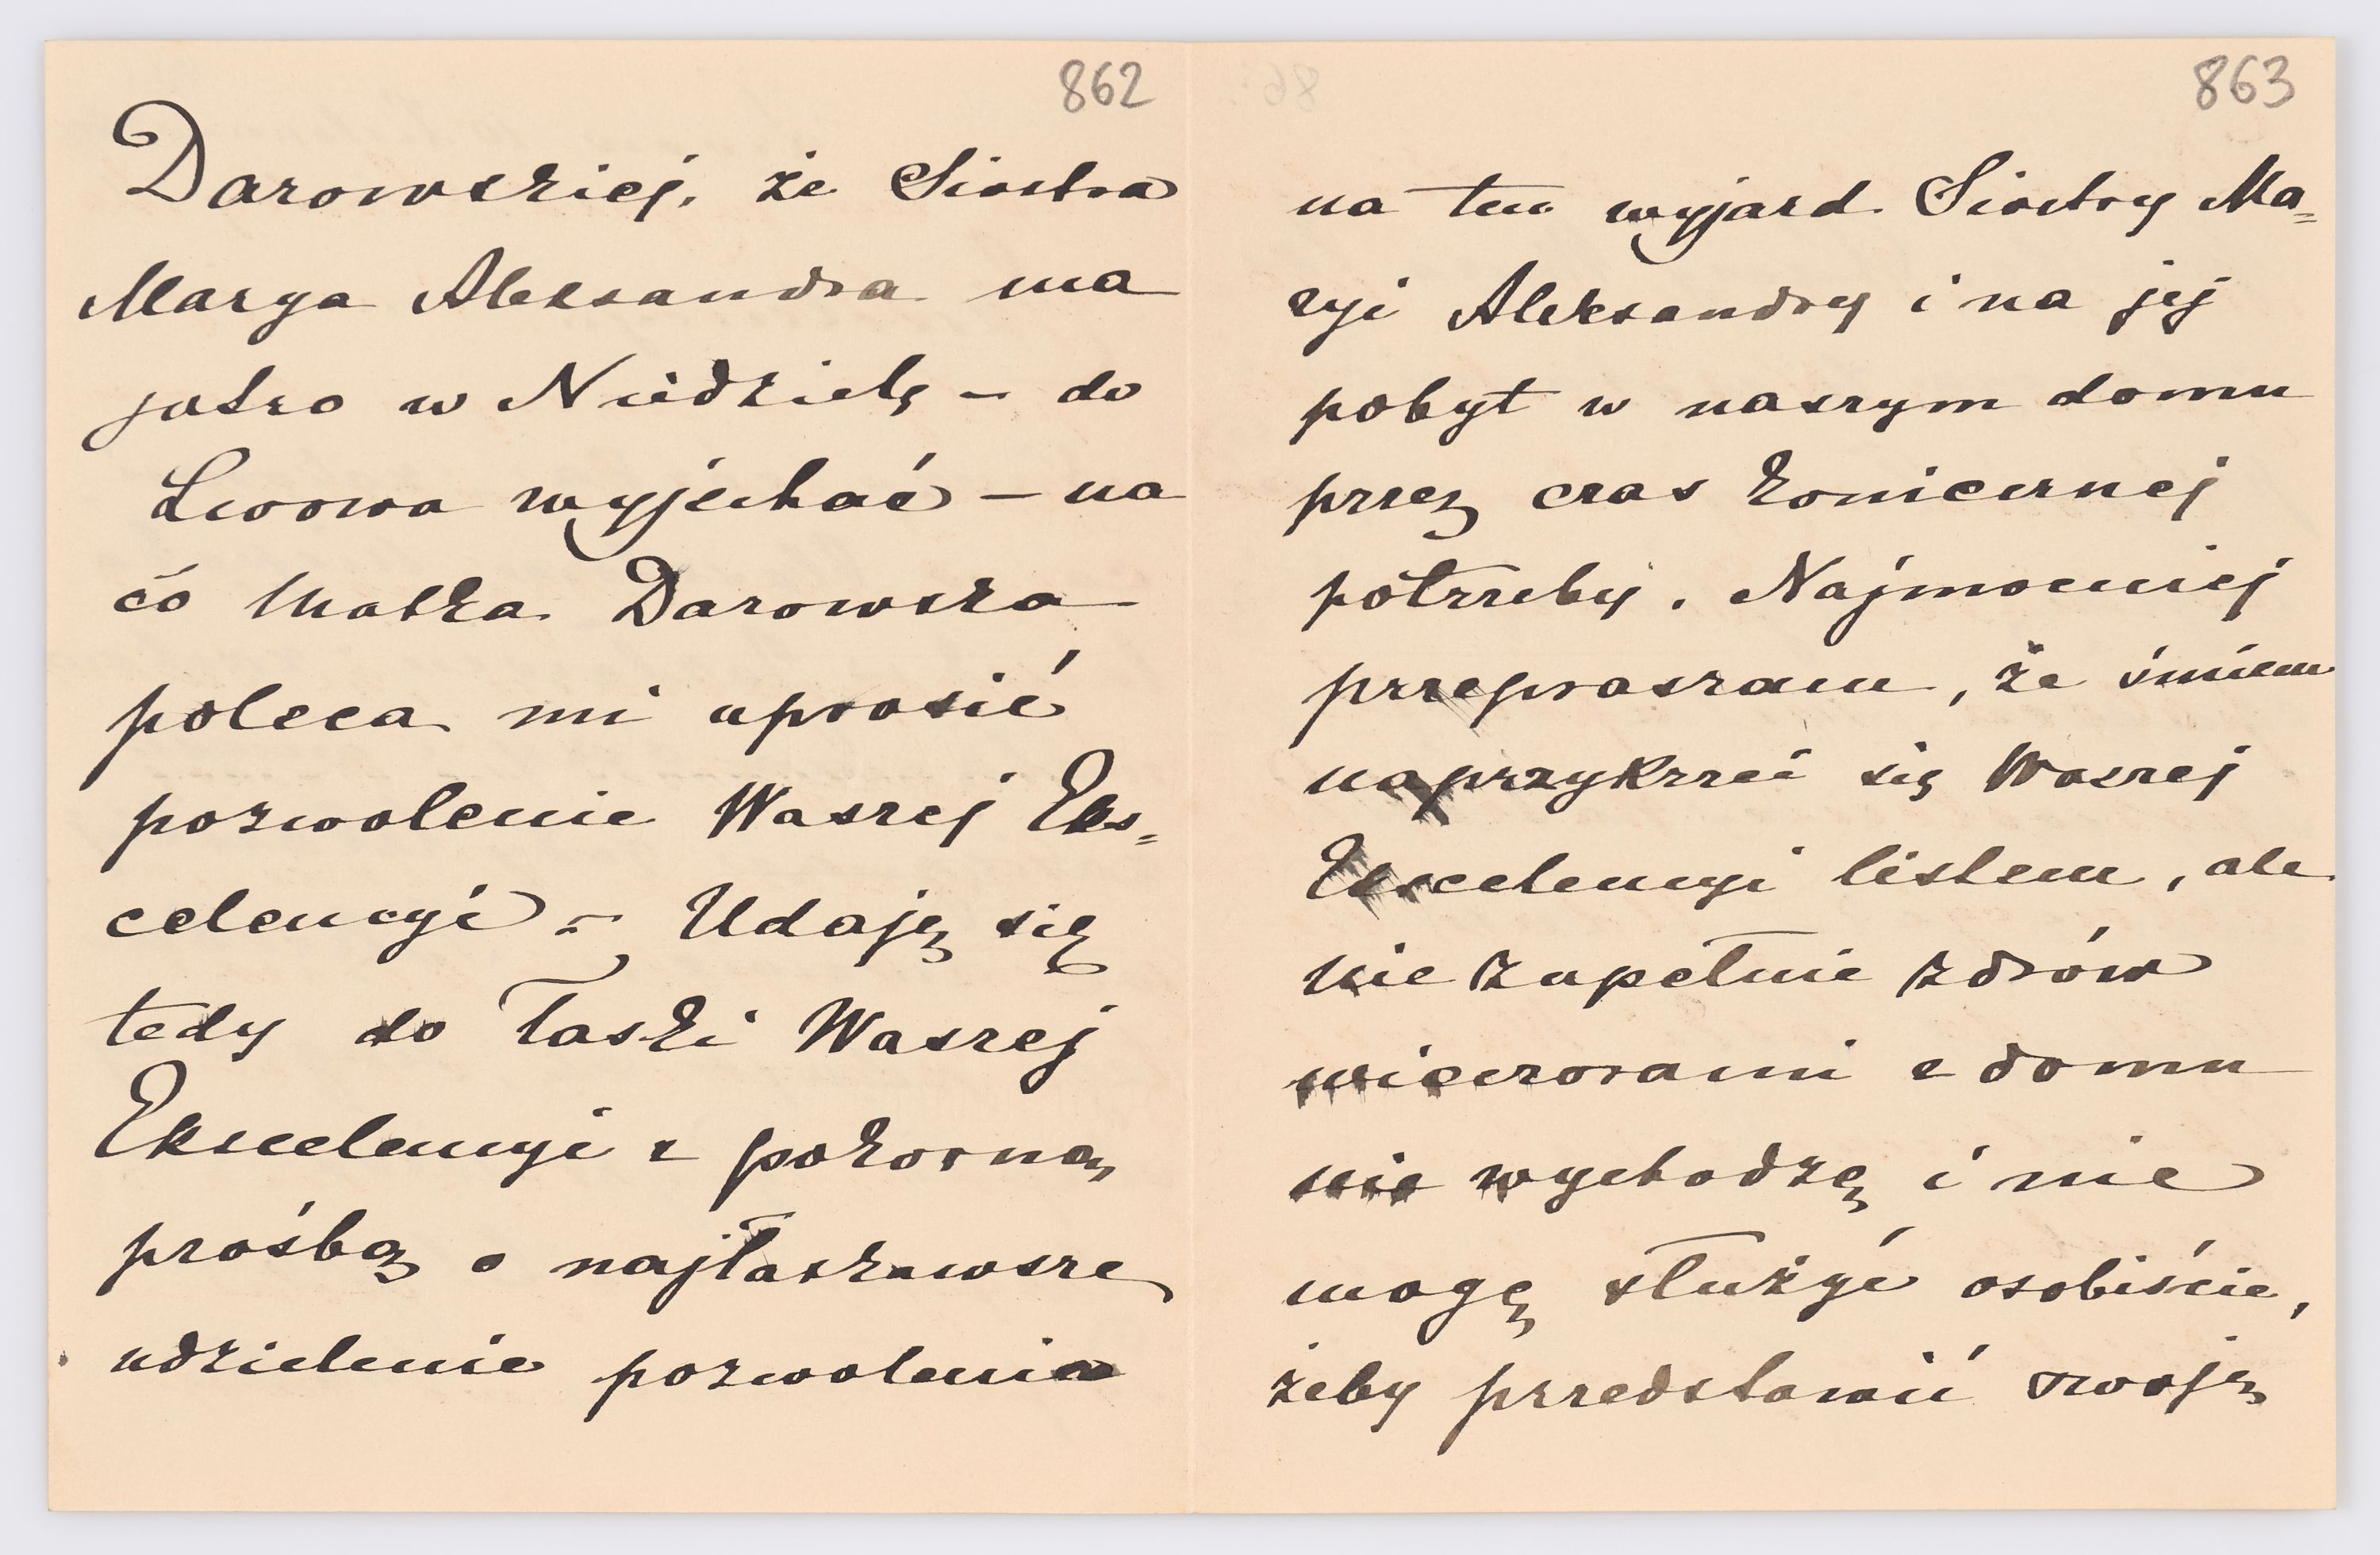 862
Darowskiej, że Siostra
Marya Aleksandra ma
jutro w Niedzielę – do
Lwowa wyjechać – na
co Matka Darowska
poleca mi uprosić
pozwolenie Waszej Eks=
celencyi – Udaję się
tedy do łaski Waszej
Ekscelencyi z pokorną
prośbą o najłaskawsze
udzielenie pozwolenia
863
na ten wyjazd Siostry Ma=
ryi Aleksandry i na jej
pobyt w naszym domu
przez czas koniecznej
potrzeby. Najmocniej
przepraszam, że śmiem
naprzykrzać się Waszej
Ekscelencyi listem, ale
nie zupełnie zdrów
wieczorami z domu
nie wychodzę i nie
mogę służyć osobiście,
żeby przedstawić swoję